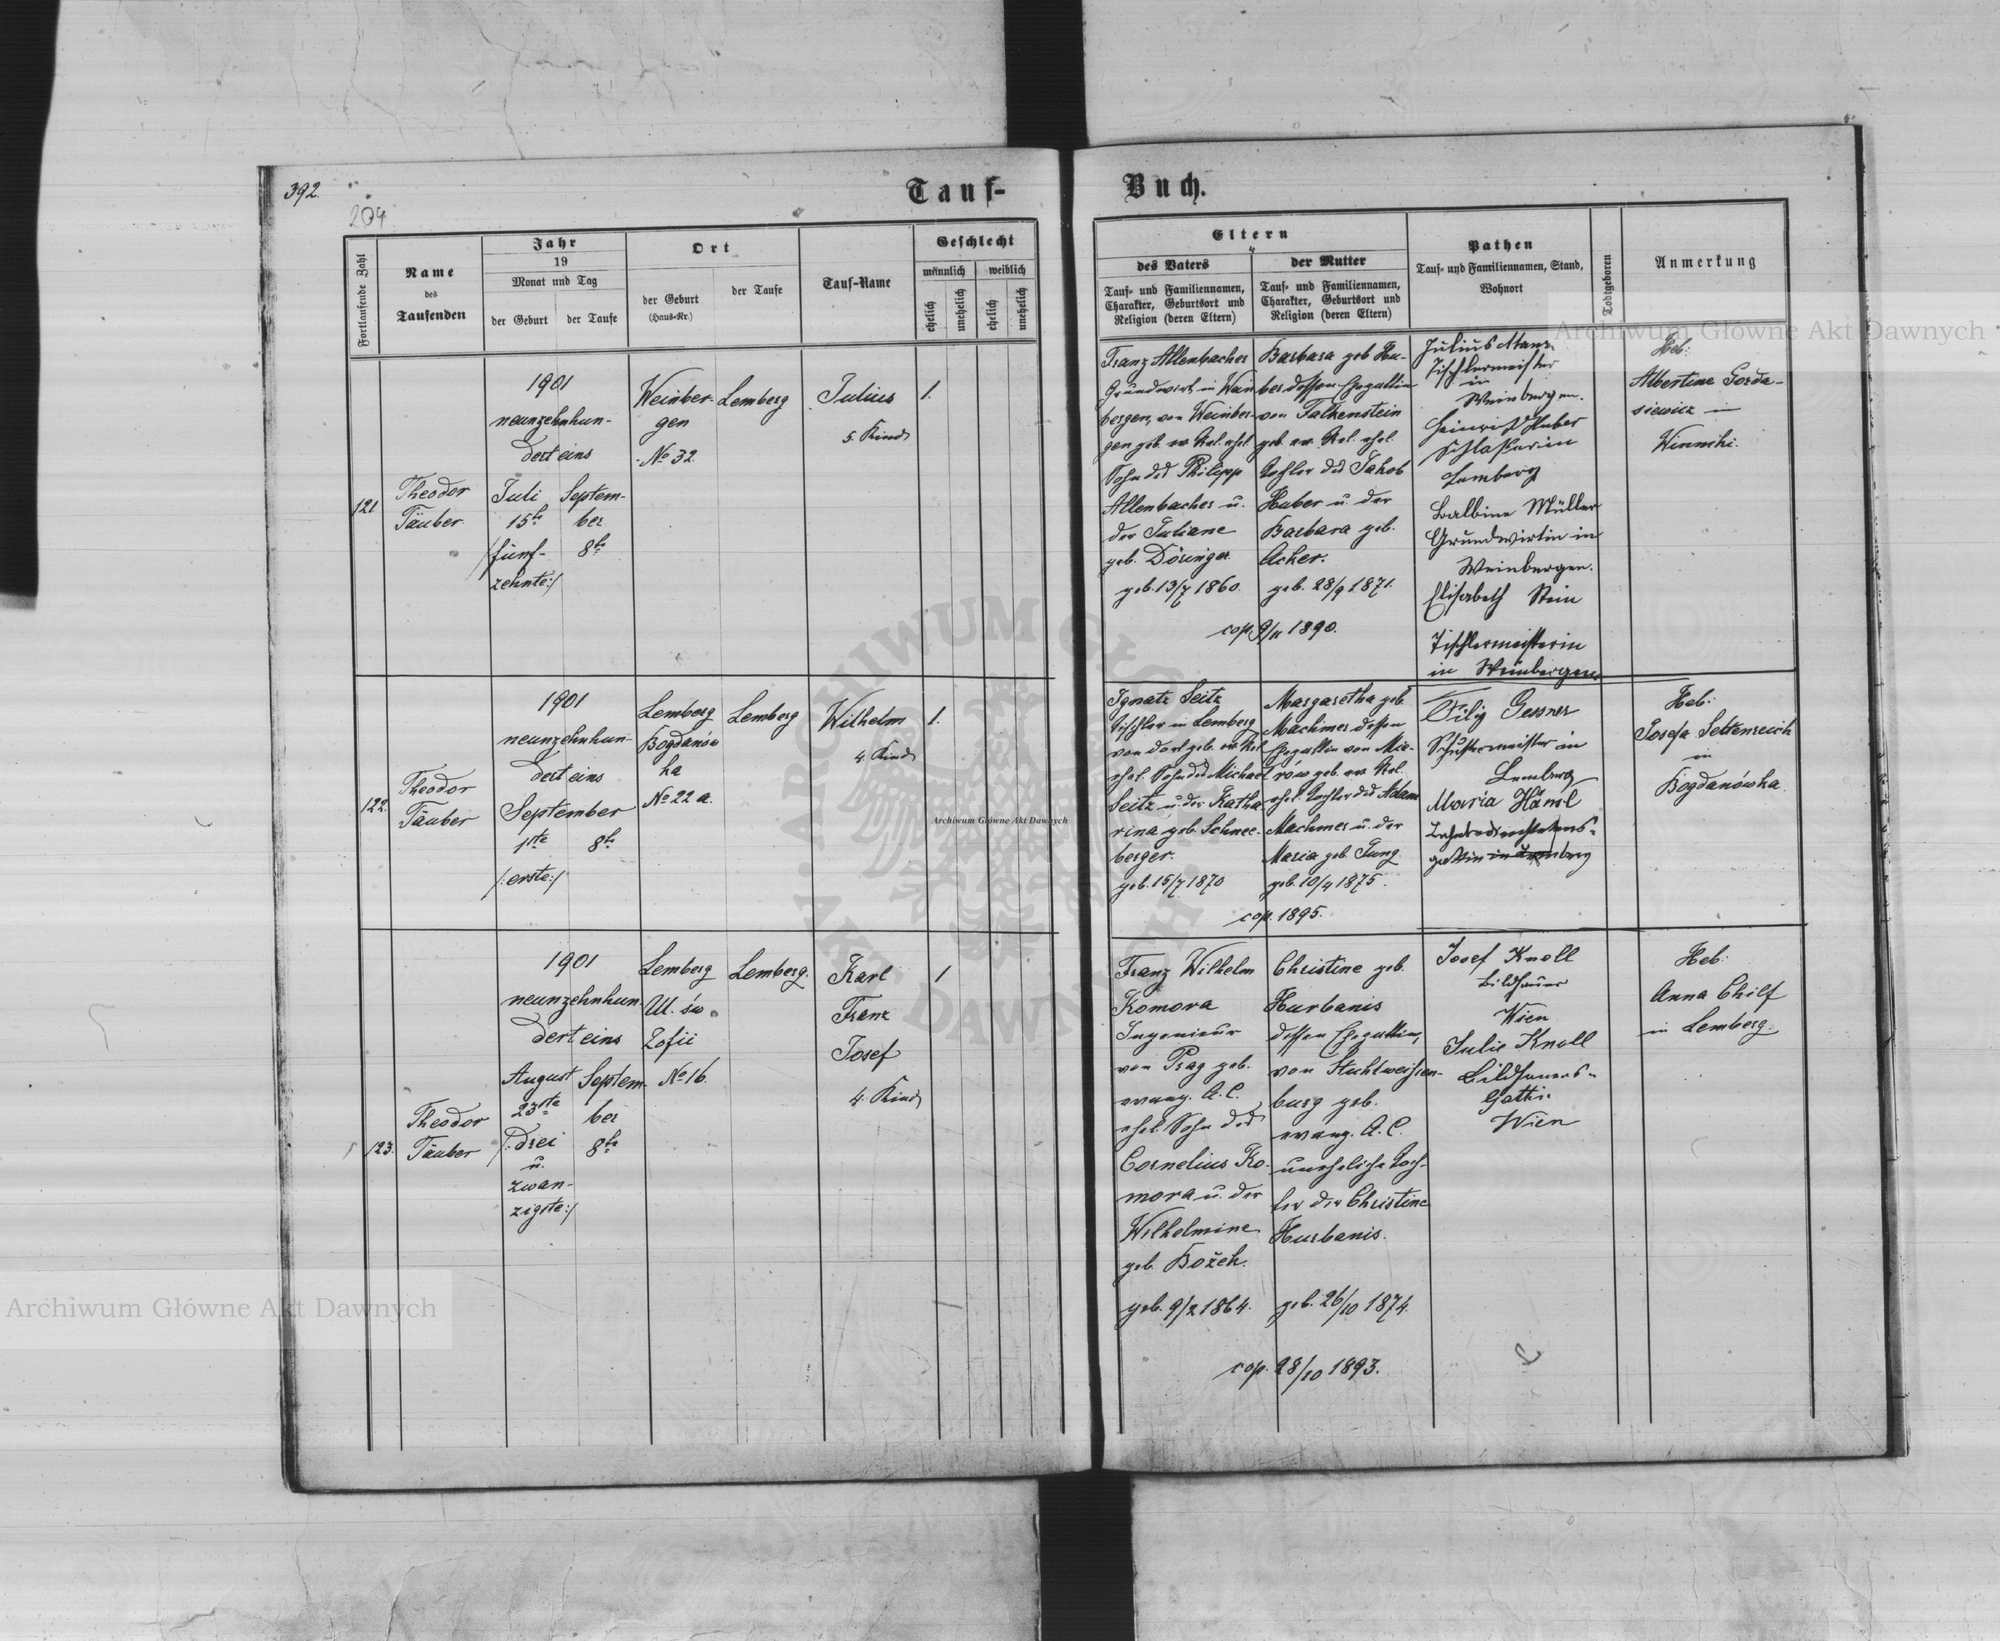 392.
204
Tauf-
Buch.
Fortlaufende Zahl
Name
des
Taufenden
Jahr
19
Monat und Tag
der Geburt
der Taufe
Ort
der Geburt
(Haus-Nr.)
der Taufe
Tauf-Name
Geschlecht
männlich
weiblich
ehelich
unehelich
ehelich
unehelich
Eltern
des Vaters
Tauf- und Familiennamen,
Charakter, Geburtsort und
Religion (deren Eltern)
der Mutter
Tauf- und Familiennamen,
Charakter, Geburtsort und
Religion (deren Eltern)
Pathen
Tauf- und Familiennamen, Stand,
Wohnort
Todtgeboren
Anmerkung
121.
Theodor
Täuber
1901
neunzehnhun-
dert eins
Juli
15te
/:fünf-
zehnte:/
Septem-
ber
8te
Weinber-
gen
No 32.
Lemberg
Julius
5. Kind
1.
Franz Allenbacher
Grundwirt in Wein
bergen, von Weinber-
gen geb. ev. Rel. ehel.
Sohn des Philipp
Allenbacher u.
der Juliane
geb. Döringer.
geb. 13/7 1860.
Barbara geb. Hu-
ber dessen Ehegattin
von Falkenstein
geb. ev. Rel. ehel.
Tochter des Jakob
Huber u. der
Barbara geb.
Acher.
geb. 28/9 1871.
cop. 9/11 1890.
Julius Manz
Tischlermeister
in
Weinbergen.
Heinrich Huber
Schlosser in
Lemberg
Balbine Müller
Grundwirtin in
Weinbergen.
Elisabeth Stein
Tischlermeisterin
in Weinbergen
Heb:
Albertine Gorda-
siewicz in
Winniki.
122.
Theodor
Täuber
1901
neunzehnhun-
dert eins
September
1ste
/:erste:/
8te
Lemberg
Bogdanów
ka
No 22 a.
Lemberg
Wilhelm
4. Kind
1.
Ignatz Seitz
Tischler in Lemberg
von dort geb. ev. Rel.
ehel. Sohn des Michael
Seitz u. der Katha-
rina geb. Schnee-
berger.
geb. 15/7 1870
Margaretha geb.
Machmer dessen
Ehegattin von Mie-
rów geb. ev. Rel.
ehel. Tochter des Adam
Machmer u. der
Maria geb. Jung.
geb. 10/4 1875.
cop. 1895.
Filip Gessner
Schustermeister in
Lemberg
Maria Hänsl
gattin in Lemberg
Heb:
Josefa Settenreich
in
Bogdanówka
123.
Theodor
Täuber
1901
neunzehnhun-
dert eins
August
23ste
/:drei
u.
zwan-
zigste:/
Septem-
ber
8te
Lemberg
Ul. św.
Zofii
No 16.
Lemberg.
Karl
Franz
Josef
4. Kind
1
Franz Wilhelm
Komora
Ingenieur
von Prag geb.
evang. A. C.
ehel. Sohn des
Cornelius Ko-
mora u. der
Wilhelmine
geb. Božek.
geb. 9/2 1864.
Christine geb.
Hurbanis
dessen Ehegattin,
von Stuhlweissen-
burg geb.
evang. A. C.
uneheliche Toch-
ter der Christine
Hurbanis.
geb. 26/10 1874.
cop. 28/10 1893.
Josef Knoll
Bildhauer
Wien
Julie Knoll
Bildhauers-
Gattin
Wien
Heb:
Anna Chilf
in Lemberg.
Archiwum Główne Akt Dawnych
Archiwum Główne Akt Dawnych
Archiwum Główne Akt Dawnych